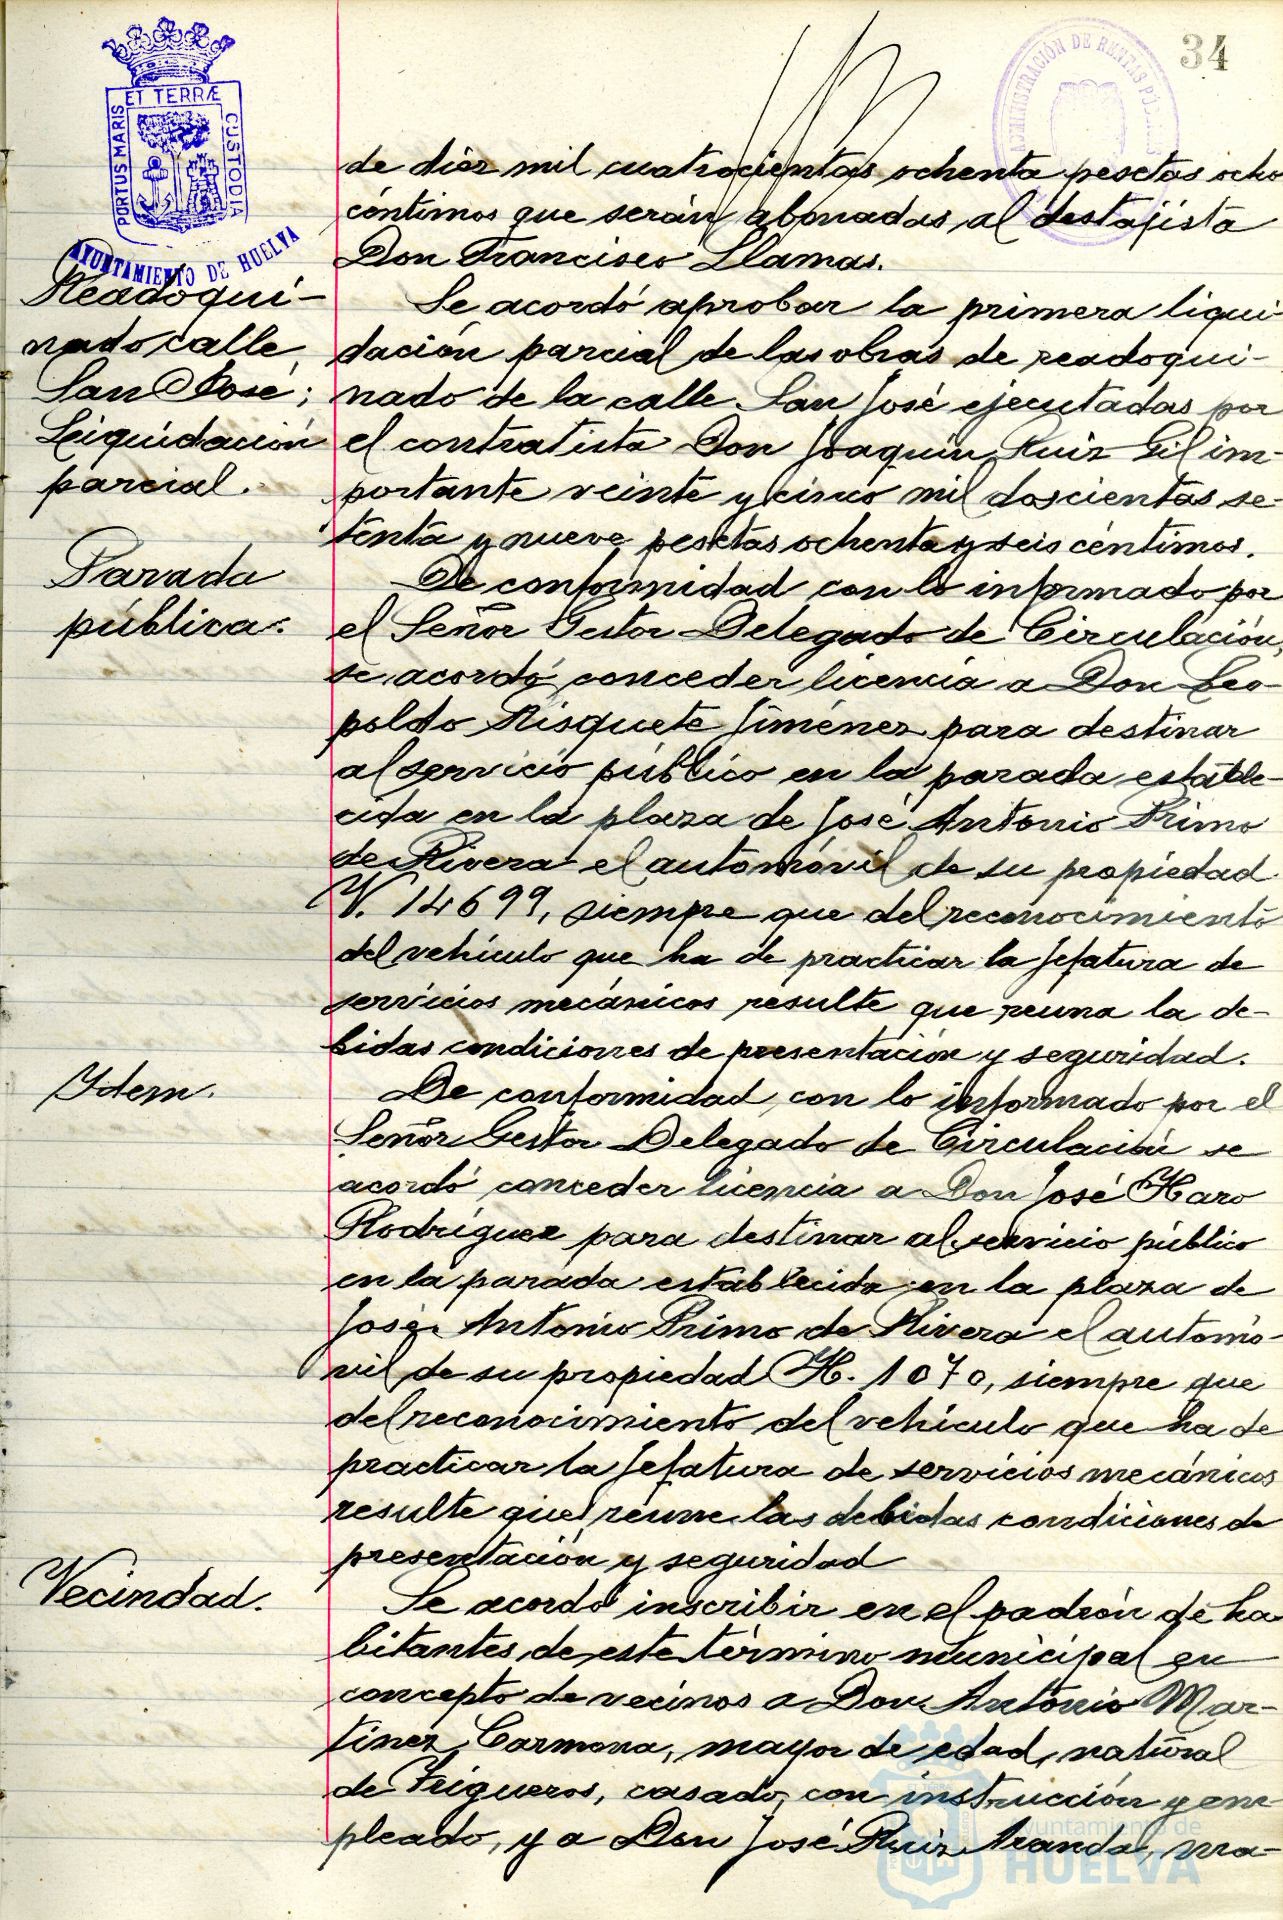 34
ADMINISTRACIÓN DE RENTAS PÚBLICAS
PORTUS MARIS ET TERRÆ CUSTODIA
AYUNTAMIENTO DE HUELVA
de diez mil cuatrocientas ochenta pesetas ocho
céntimos que serán abonadas al destajista
Don Francisco Llamas.
Readoqui-
nado calle
San José;
Liquidación
parcial.
Se acordó aprobar la primera liqui-
dación parcial de las obras de readoqui-
nado de la calle San José ejecutadas por
el contratista Don Joaquín Ruiz Gil im-
portante veinte y cinco mil doscientas se-
tenta y nueve pesetas ochenta y seis céntimos.
Parada
pública.
De conformidad con lo informado por
el Señor Gestor Delegado de Circulación,
se acordó conceder licencia a Don Leo-
poldo Risquete Jiménez para destinar
al servicio público en la parada estable-
cida en la plaza de José Antonio Primo
de Rivera el automóvil de su propiedad
V. 14699, siempre que del reconocimiento
del vehículo que ha de practicar la jefatura de
servicios mecánicos resulte que reuna la de-
bidas condiciones de presentación y seguridad.
Idem.
De conformidad con lo informado por el
Señor Gestor Delegado de Circulación se
acordó conceder licencia a Don José Haro
Rodríguez para destinar al servicio público
en la parada establecida en la plaza de
José Antonio Primo de Rivera el automó-
vil de su propiedad H. 1070, siempre que
del reconocimiento del vehículo que ha de
practicar la jefatura de servicios mecánicos
resulte que reune las debidas condiciones de
presentación y seguridad
Vecindad.
Se acordó inscribir en el padrón de ha-
bitantes de este término municipal en
concepto de vecinos a Don Antonio Mar-
tínez Carmona, mayor de edad, natural
de Trigueros, casado, con instrucción y em-
pleado, y a Don José Ruiz Aranda, ma-
Ayuntamiento de
HUELVA